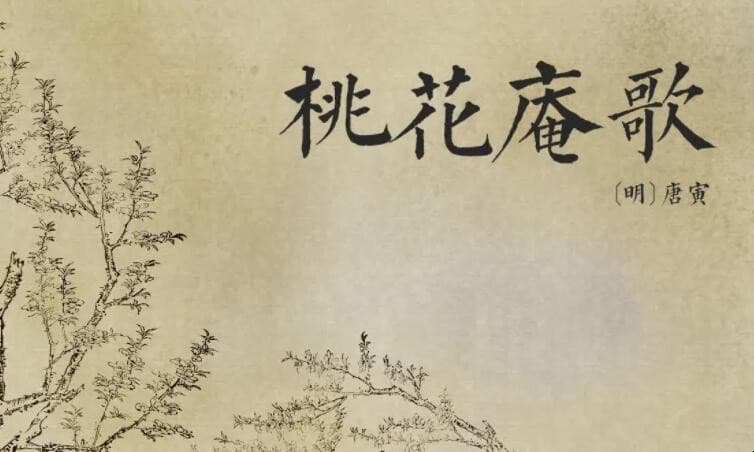 桃花庵歌
〔明〕唐寅